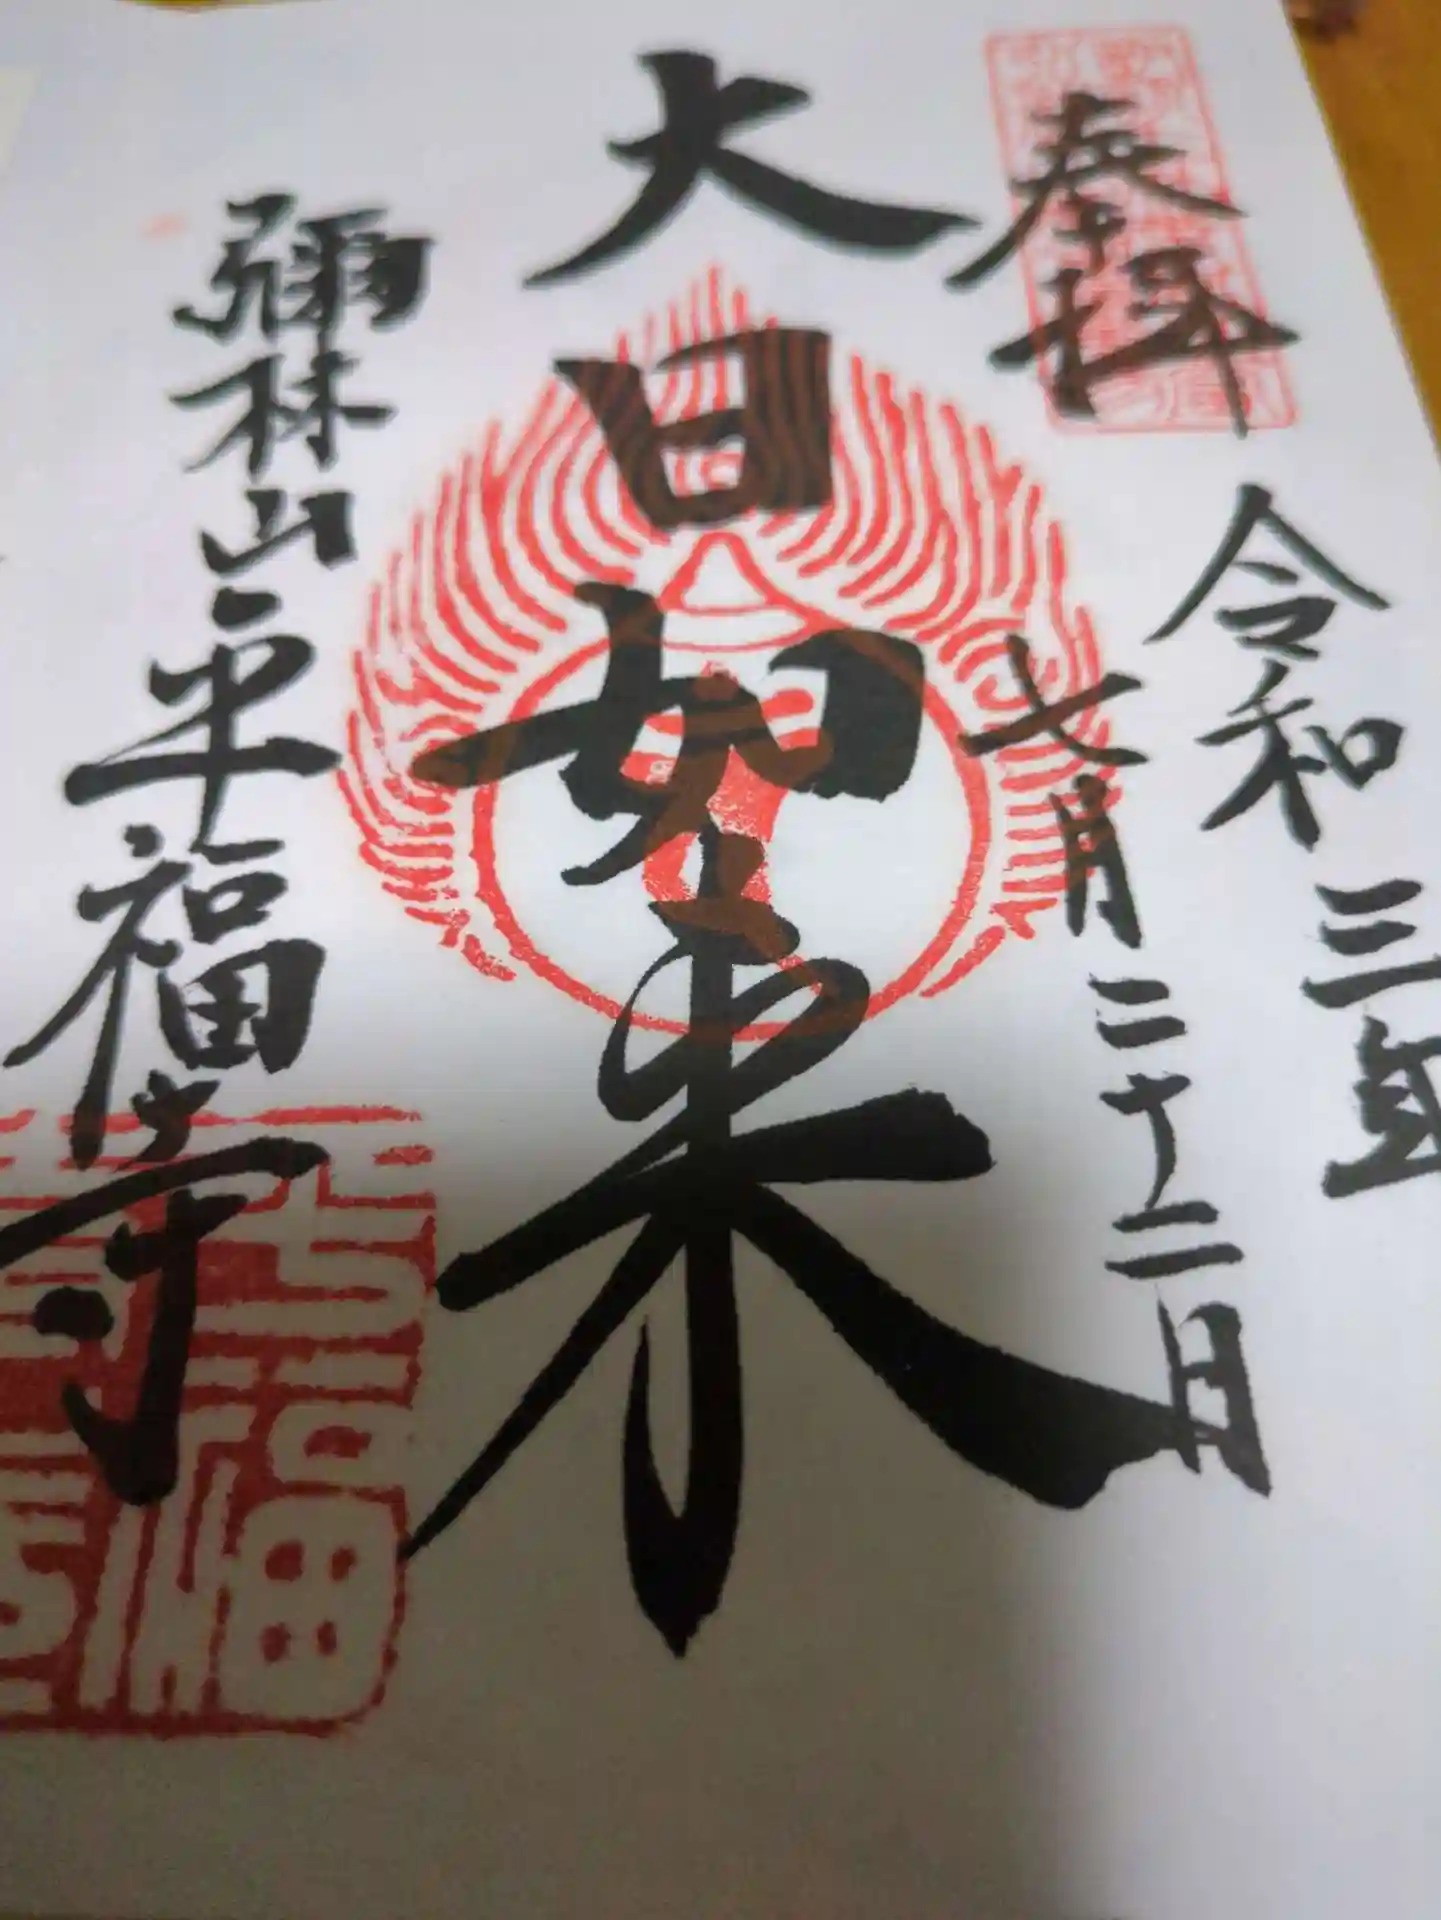 奉拝
令和三年
七月二十二日
大日如来
彌林山
平福寺